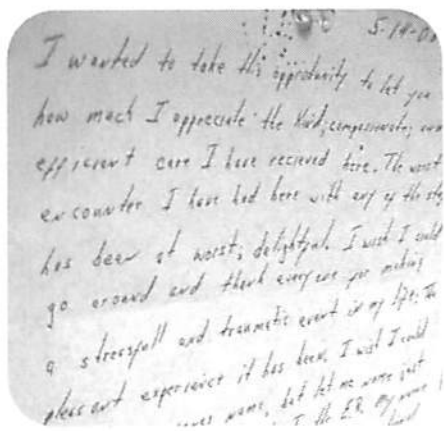 5-14-0
I wanted to take this opportunity to let you
how much I appreciate the kind, compassionate,
efficient care I have recieved here. The worst
encounter I have had here with any of the
has been at worst; delightful. I wish I could
go around and thank everyone for making
a stressfull and traumatic event in my life; The
pleasant experience it has been. I wish I could
name, but let me name just
I the ER, my name